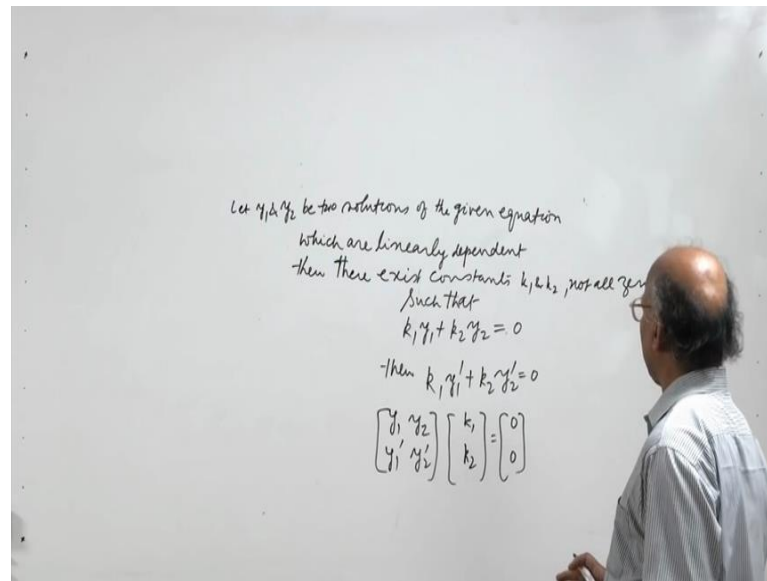 Let y₁ & y₂ be two solutions of the given equation
which are linearly dependent
then there exist constants k₁ & k₂, not all
Such that
k₁y₁ + k₂y₂ = 0
then k₁y₁' + k₂y₂' = 0
[y₁ y₂] [k₁] = [0]
[y₁' y₂'] [k₂] [0]